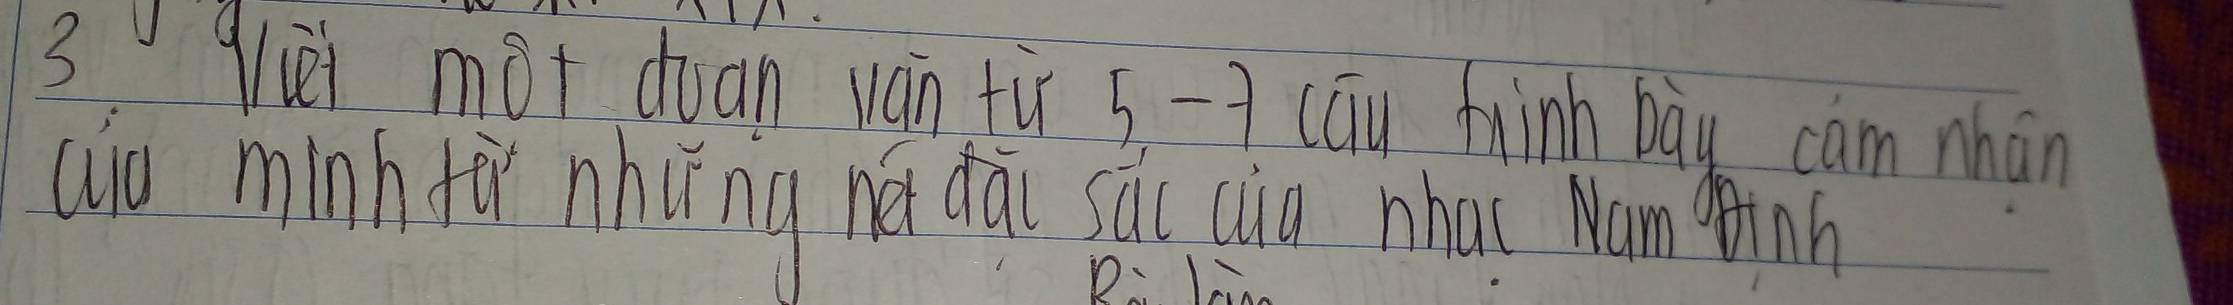 3 Viết một đoạn văn từ 5-7 câu trình bày cảm nhận
của mình từ những nét đặc sắc của nhạc Nam Định
Bài làm